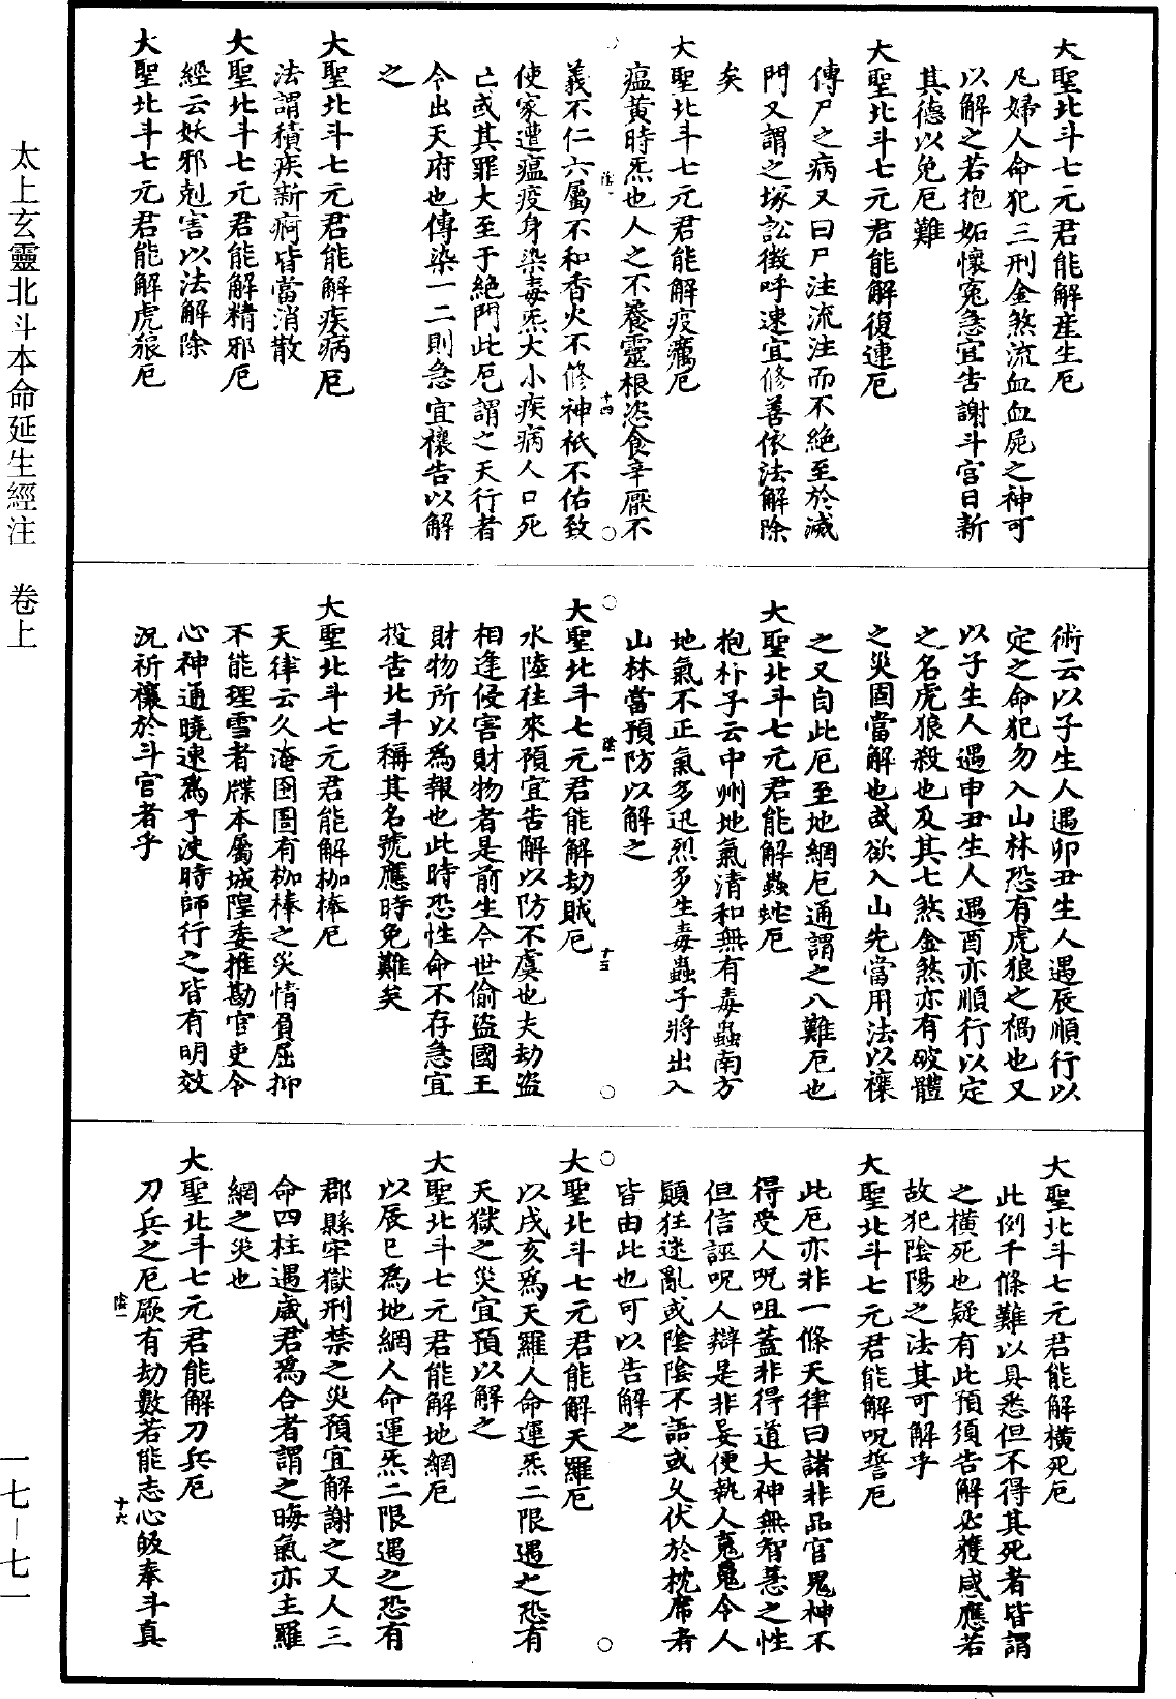 大聖北斗七元君能解產生厄
凡婦人命犯三刑金煞流血血屍之神可
以解之若抱妬懷冤急宜告謝斗宮日新
其德以免厄難
大聖北斗七元君能解復連厄
傳尸之病又曰尸注流注而不絕至於滅
門又謂之塚訟徵呼速宜修善依法解除
矣
大聖北斗七元君能解疫癘厄
瘟黃時炁也人之不養靈根恣食辛厭不
陰一
十四
義不仁六屬不和香火不修神祇不佑致
使家遭瘟疫身染毒炁大小疾病人口死
亡或其罪大至于絕門此厄謂之天行者
令出天府也傳染一二則急宜禳告以解
之
大聖北斗七元君能解疾病厄
法謂積疾新痾皆當消散
大聖北斗七元君能解精邪厄
經云妖邪剋害以法解除
大聖北斗七元君能解虎狼厄
術云以子生人遇卯丑生人遇辰順行以
定之命犯勿入山林恐有虎狼之禍也又
以子生人遇申丑生人遇酉亦順行以定
之名虎狼殺也及其七煞金煞亦有破體
之災固當解也或欲入山先當用法以禳
之又自此厄至地網厄通謂之八難厄也
大聖北斗七元君能解蟲蛇厄
抱朴子云中州地氣清和無有毒蟲南方
地氣不正氣多迅烈多生毒蟲子將出入
山林當預防以解之
陰一
十五
大聖北斗七元君能解劫賊厄
水陸往來預宜告解以防不虞也夫劫盜
相逢侵害財物者是前生今世偷盜國王
財物所以為報也此時恐性命不存急宜
投告北斗稱其名號應時免難矣
大聖北斗七元君能解枷棒厄
天律云久淹囹圄有枷棒之災情負屈抑
不能理雪者牒本屬城隍委推勘官吏令
心神通曉速為予決時師行之皆有明效
況祈禳於斗官者乎
大聖北斗七元君能解橫死厄
此例千條難以具悉但不得其死者皆謂
之橫死也疑有此預須告解必獲感應若
故犯陰陽之法其可解乎
大聖北斗七元君能解呪誓厄
此厄亦非一條天律曰諸非品官鬼神不
得受人呪咀蓋非得道大神無智慧之性
但信誣呪人辯是非妄便執人䰟鬼令人
顛狂迷亂或陰陰不語或久伏於枕席者
皆由此也可以告解之
大聖北斗七元君能解天羅厄
以戌亥為天羅人命運炁二限遇之恐有
天獄之災宜預以解之
大聖北斗七元君能解地網厄
以辰巳為地網人命運炁二限遇之恐有
郡縣牢獄刑禁之災預宜解謝之又人三
命四柱遇歲君為合者謂之晦氣亦主羅
網之災也
大聖北斗七元君能解刀兵厄
刀兵之厄厥有劫數若能志心皈奉斗真
陰一
十六
太上玄靈北斗本命延生經注 卷上
一七—七一